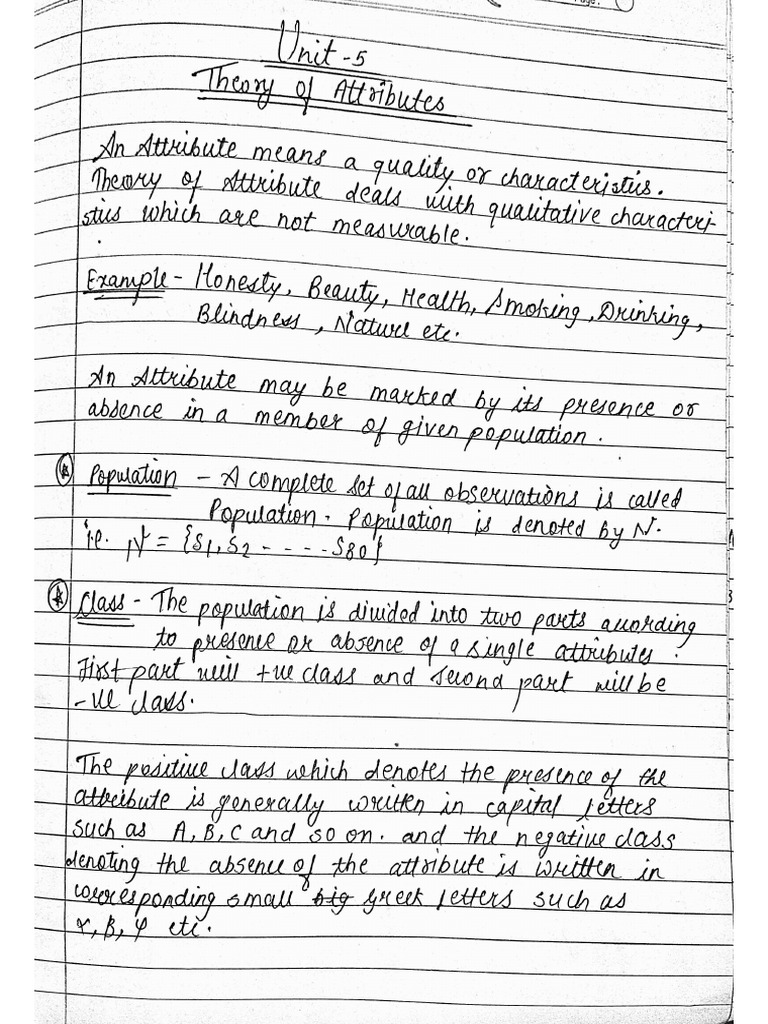 Page:
Unit-5
Theory of Attributes
An Attribute means a quality or characteristics.
Theory of Attribute deals with qualitative characteri-
stics which are not measurable.
Example - Honesty, Beauty, Health, Smoking, Drinking,
Blindness, Nature etc.
An Attribute may be marked by its presence or
absence in a member of given population.
Population - A complete set of all observations is called
Population. Population is denoted by N.
i.e. N = {S1, S2 - - - - S80}
Class - The population is divided into two parts according
to presence or absence of a single attributes.
First part will +ve class and second part will be
-ve class.
The positive class which denotes the presence of the
attribute is generally written in capital letters
such as A, B, C and so on. and the negative class
denoting the absence of the attribute is written in
corresponding small big greek letters such as
α, β, φ etc.